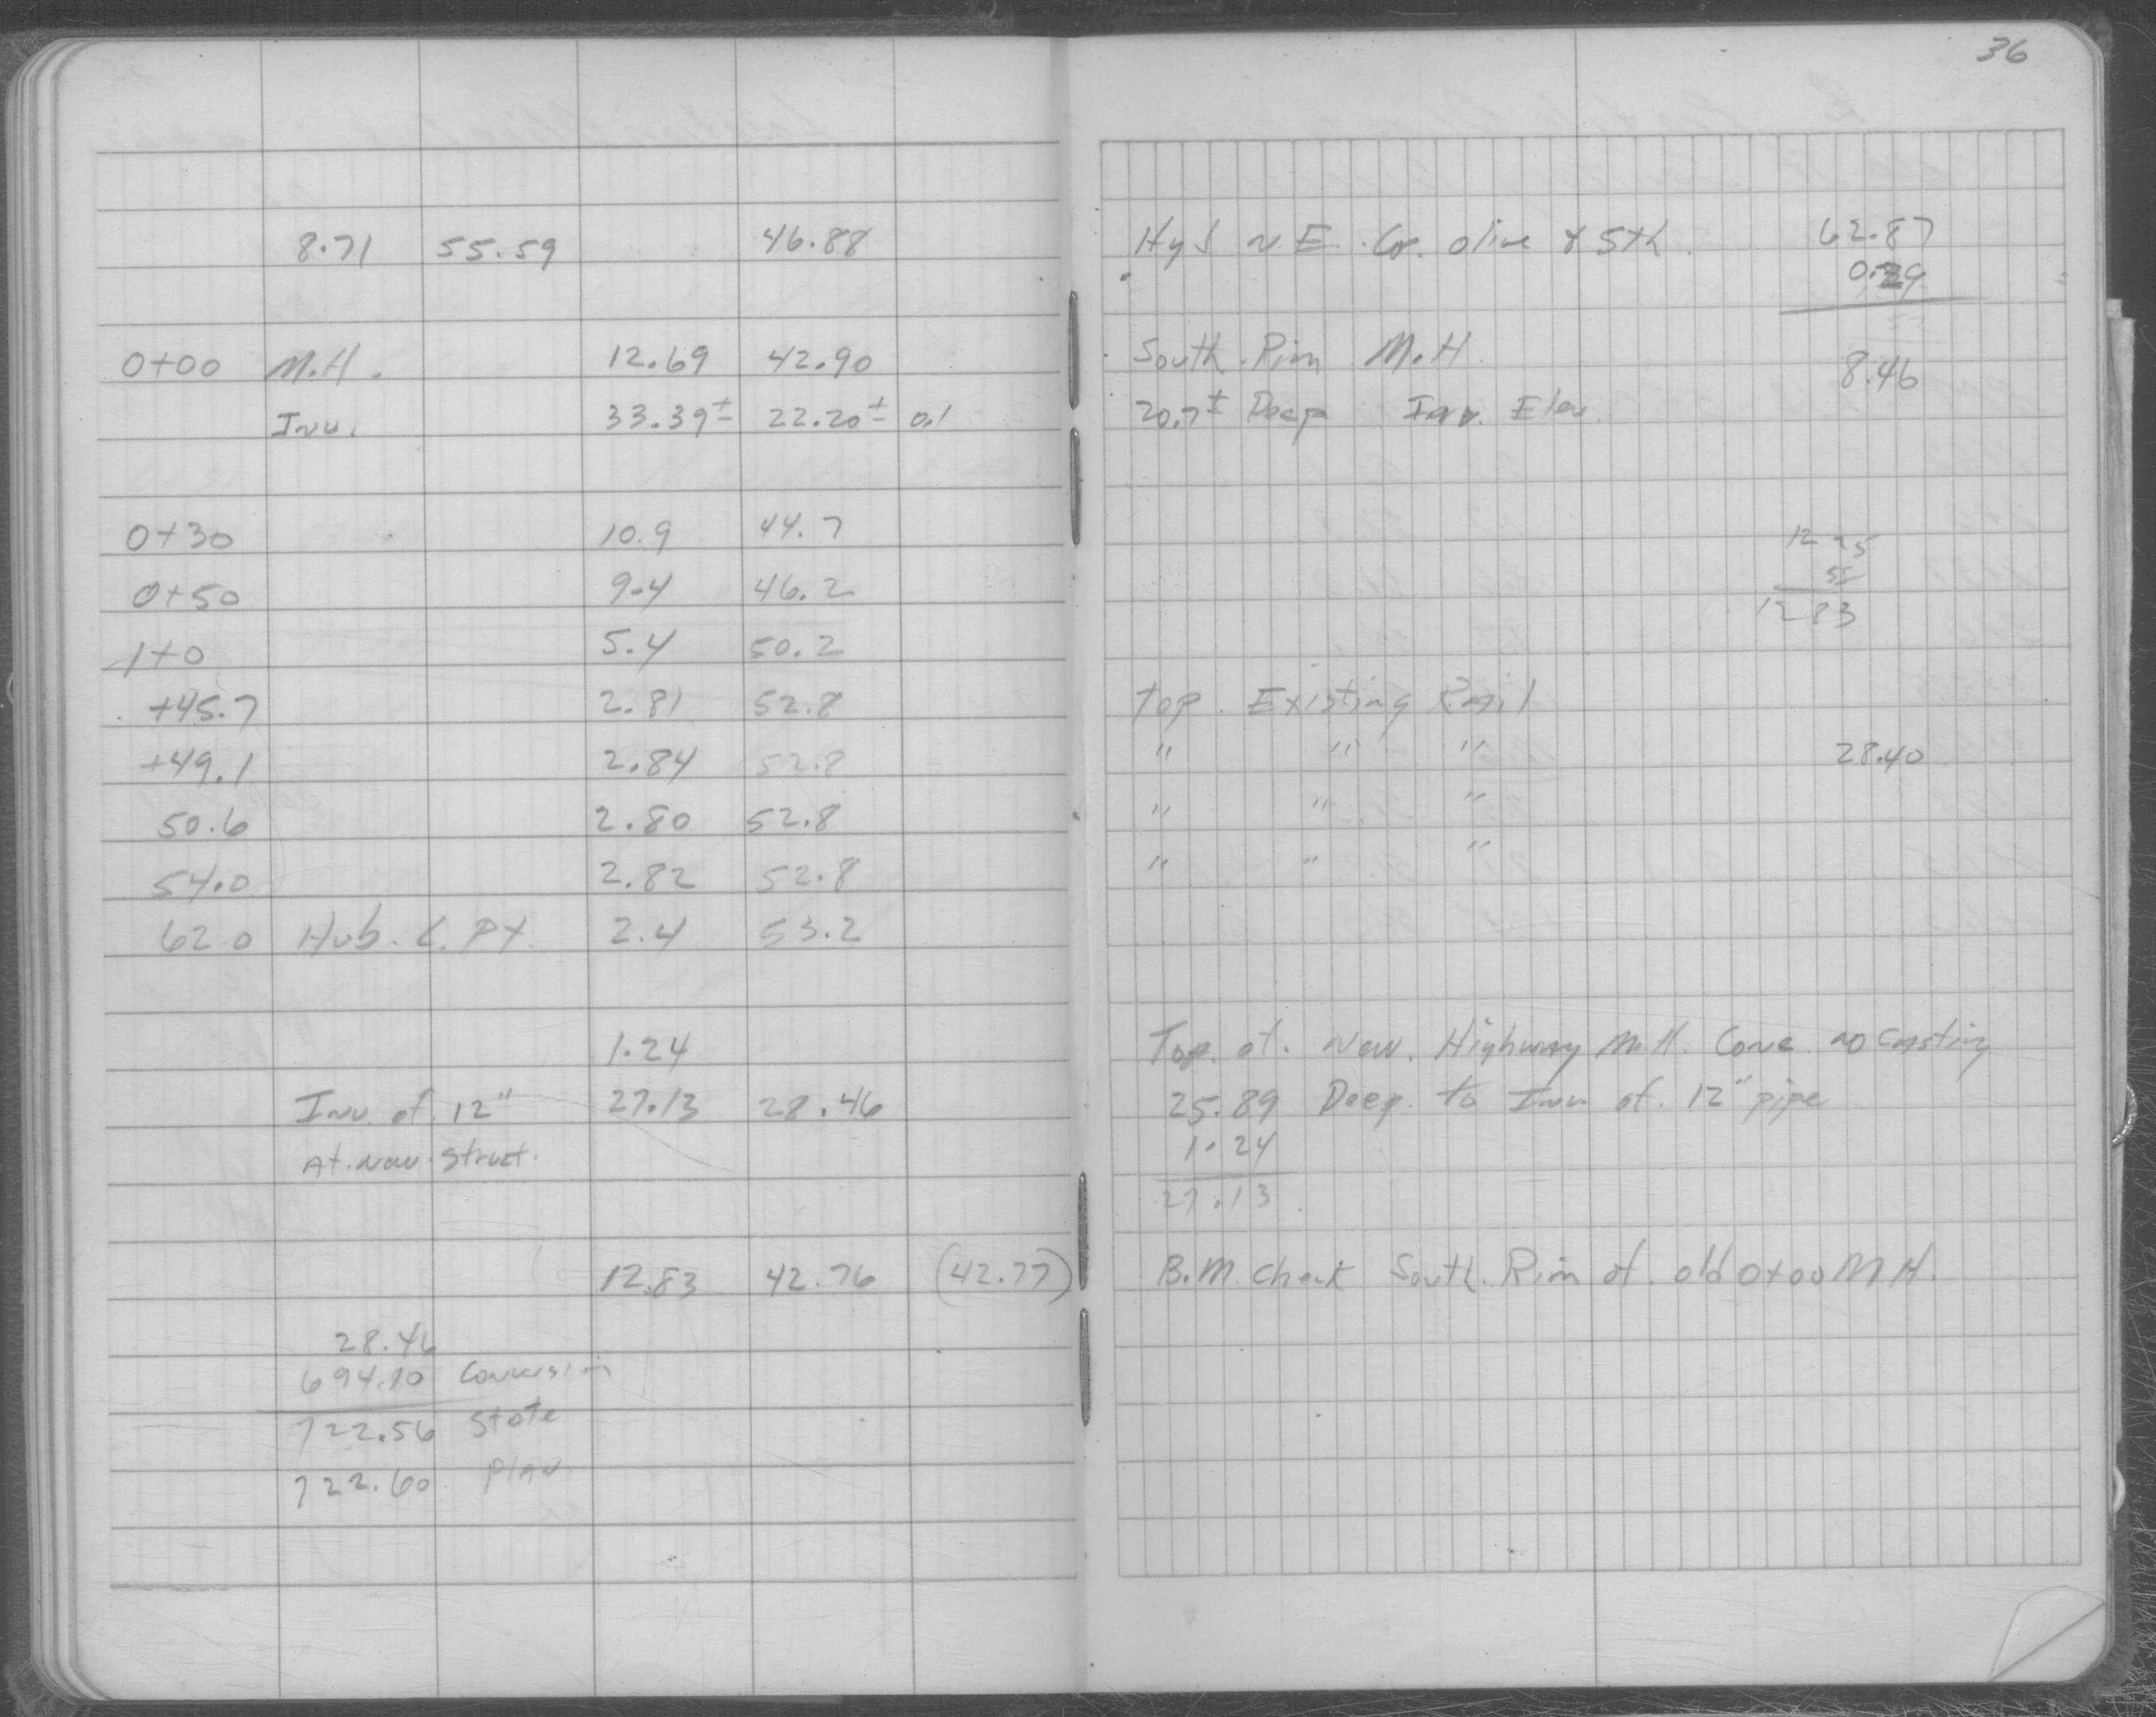 36
8.71 55.59 46.88 Hyd N.E. Cor. Olive & 5th 62.87
0.29
0+00 M.H. 12.69 42.90 South Rim M.H. 8.46
Inv. 33.39± 22.20± 0.1 20.7± Deep Inv. Elev.
0+30 10.9 44.7
12 25
0+50 9.4 46.2 58
12 83
1+0 5.4 50.2
+45.7 2.81 52.8 Top Existing Rail
+49.1 2.84 52.8 " " " 28.40
50.6 2.80 52.8 " " "
54.0 2.82 52.8 " " "
62.0 Hub. & Pt. 2.4 53.2
1.24 Top of New Highway M.H. Cone no casting
Inv. of 12" 27.13 28.46 25.89 Deep to Inv of 12" pipe
At. New Struct. 1.24
27.13
12.83 42.76 (42.77) B.M. Check South Rim of old 0+00 M.H.
28.46
694.10 Conversion
722.56 State
722.60 Plan